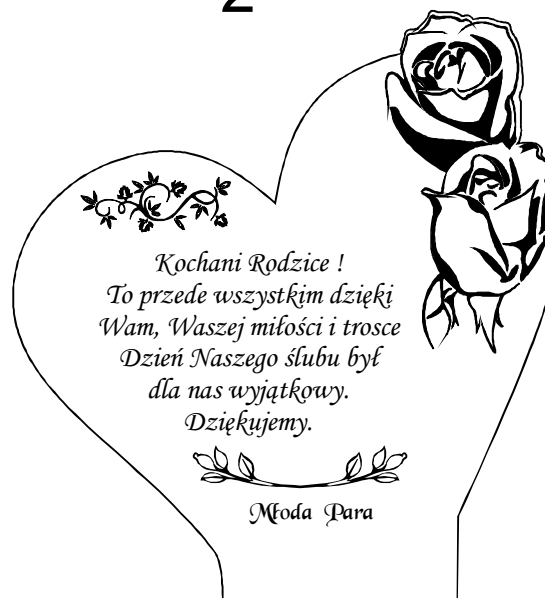 2
Kochani Rodzice !
To przede wszystkim dzięki
Wam, Waszej miłości i trosce
Dzień Naszego ślubu był
dla nas wyjątkowy.
Dziękujemy.
Młoda Para